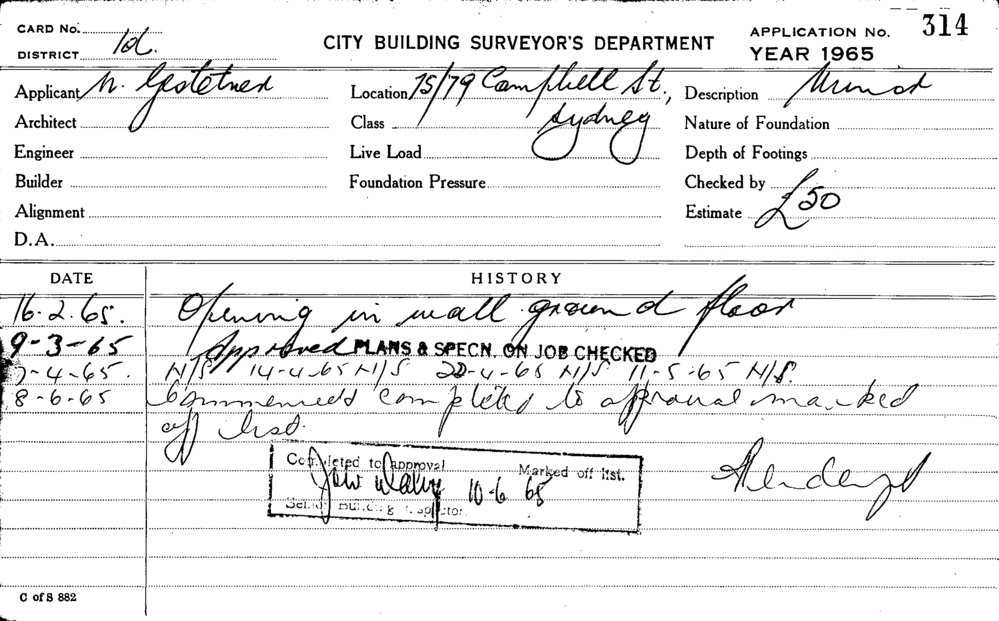 CARD No.
DISTRICT 1d.
CITY BUILDING SURVEYOR'S DEPARTMENT
APPLICATION No. 314
YEAR 1965
Applicant N. Gestetner
Location 75/79 Campbell St.,
Sydney
Description
Architect
Class
Nature of Foundation
Engineer
Live Load
Depth of Footings
Builder
Foundation Pressure
Checked by
Alignment
Estimate £50
D.A.
DATE HISTORY
16.2.65. Opening in wall ground floor
9-3-65 Approved PLANS & SPECN. ON JOB CHECKED
7-4-65. N/S 14-4-65 N/S 22-4-65 N/S 11-5-65 N/S.
8-6-65 Commenced completed to approval marked
off list.
Completed to approval Marked off list.
10-6 65
Senior Building Inspector
C of S 882